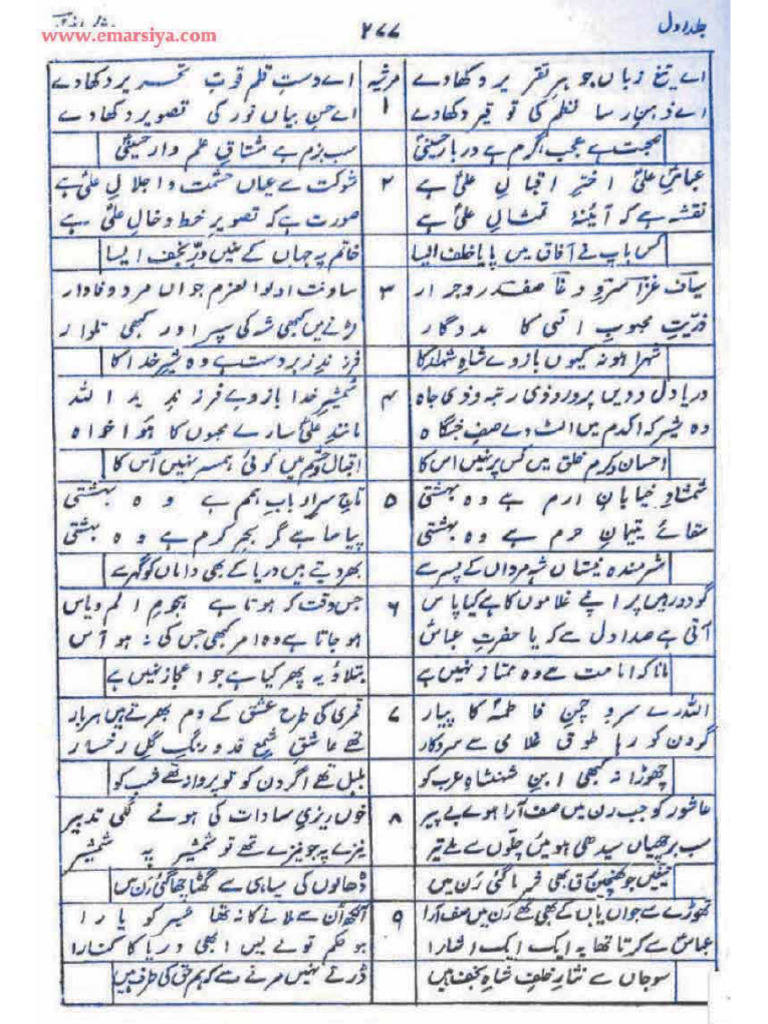 www.emarsiya.com ۲۷۷ جلد اول
اے تیغِ زباں جوہرِ تقریر دکھادے مرثیہ ۱ اے دستِ قلم قوتِ تحریر دکھادے
اے ذہنِ رسا نظم کی توقیر دکھادے اے حسنِ بیاں نور کی تصویر دکھادے
صحبت ہے عجب، گرم ہے دربارِ حسینیؑ سب بزم ہے مشتاقِ علمدارِ حسینیؑ
عباسِ علیؑ اخترِ اقبالِ علیؑ ہے ۲ شوکت سے عیاں حشمت و اجلالِ علیؑ ہے
نقشہ ہے کہ آئینۂ تمثالِ علیؑ ہے صورت ہے کہ تصویرِ خط و خالِ علیؑ ہے
کس باپ نے آفاق میں پایا خلف ایسا خاتم پہ جہاں کے نہیں دُرِّ نجف ایسا
سیافِ غزا سروِ وغا صفدر و جرار ۳ ساونت اولوالعزم جواں مرد وفادار
ذریتِ محبوبِ الٰہی کا مددگار لڑنے میں کبھی شہ کی سپر اور کبھی تلوار
شہرا ہو نہ کیوں بازوے شاہِ شہدا کا فرزندِ زبردست ہے وہ شیرِ خدا کا
دریا دل و دیں پرور و ذی رتبہ و ذی جاہ ۴ شمشیرِ خدا بازوے فرزندِ ید اللہ
وہ شیر کہ اکدم میں الٹ دے صفِ جنگاہ مانندِ علیؑ سارے محبوں کا ہوا خواہ
احسان و کرم خلق میں کس پر نہیں اس کا اقبال و حشم میں کوئی ہمسر نہیں اُس کا
شمشادِ خیابانِ ارم ہے وہ بہشتی ۵ تاجِ سرِ اربابِ ہمم ہے وہ بہشتی
سقائے یتیمانِ حرم ہے وہ بہشتی پیاسا ہے مگر بحرِ کرم ہے وہ بہشتی
شرمندہ نیستاں شہِ مرداں کے پسر سے بھر دیتے ہیں دریا کے بھی داماں کو گہر سے
گو دور ہیں پر اپنے غلاموں کا ہے کیا پاس ۶ جس وقت کہ ہوتا ہے ہجومِ الم و یاس
آتی ہے صدا دل سے کہ یا حضرتِ عباسؑ ہو جاتا ہے وہ امر کبھی جس کی نہ ہو آس
مانا کہ امامت سے وہ ممتاز نہیں ہے بتلاؤ یہ پھر کیا ہے جو اعجاز نہیں ہے
اللہ رے سروِ چمنِ فاطمہؑ کا پیار ۷ قمری کی طرح عشق کے دم بھرتے ہیں ہر بار
گردن کو رہا طوقِ غلامی سے سروکار تھے عاشقِ شمعِ قد و رنگِ گلِ رخسار
چھوڑا نہ کبھی ابنِ شہنشاہِ عرب کو بلبل تھے اگر دن کو تو پروانہ تھے شب کو
عاشور کو جب رن میں صف آرا ہوے بے پیر ۸ خوں ریزیِ سادات کی ہونے لگی تدبیر
سب برچھیاں سیدھی ہوئیں چلّوں سے ملے تیر نیزے پہ جو نیزے تھے تو شمشیر پہ شمشیر
تیغیں جو کھنچیں برق بھی تھرا گئی رن میں ڈھالوں کی سیاہی سے گھٹا چھا گئی رن میں
تھوڑے سے جواں یاں کے بھی تھے رن میں صف آرا ۹ آنکھ اُن سے ملانے کا نہ تھا شیر کو یارا
عباسؑ سے کرتا تھا یہ ایک ایک اشارا ہو حکم تو لے لیں ابھی دریا کا کنارا
سو جاں سے نثارِ خلفِ شاہِ نجف ہیں ڈرتے نہیں مرنے سے کہ ہم حق کی طرف ہیں